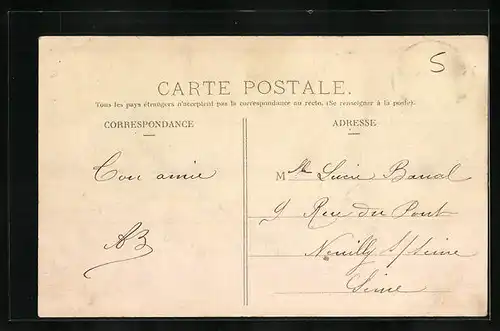 5
CARTE POSTALE.
Tous les pays étrangers n'acceptent pas la correspondance au recto. (Se renseigner à la poste).
CORRESPONDANCE
ADRESSE
Ton amie
AB
Mlle Lucie
9 Rue du Pont
Neuilly s/Seine
Seine